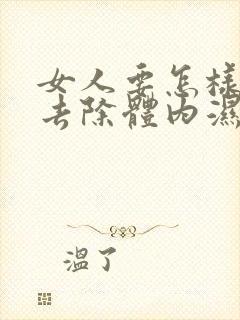 女人要怎樣
去除體內濕
溫了